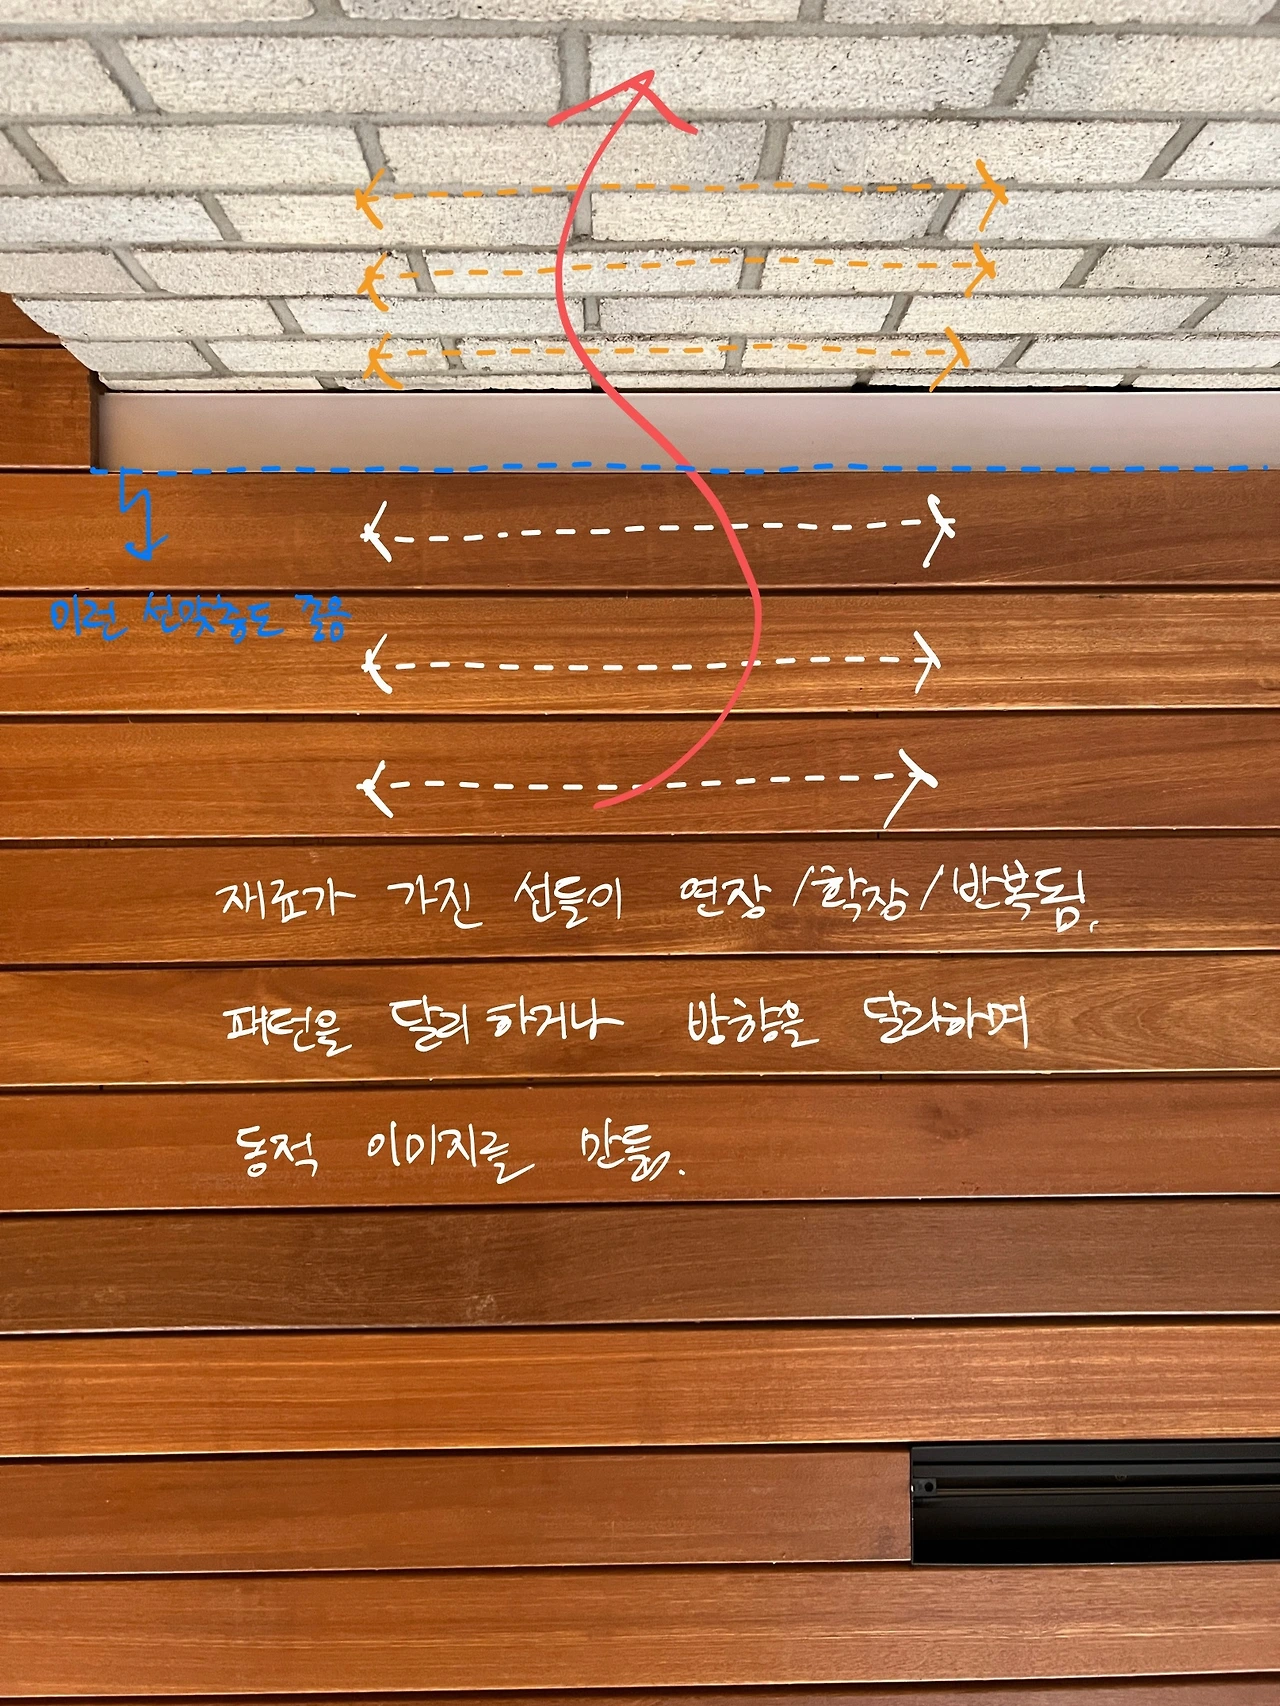 이런 선맞춤도 좋음
재료가 가진 선들이 연장/확장/반복됨.
패턴을 달리하거나 방향을 달리하며
동적 이미지를 만듦.